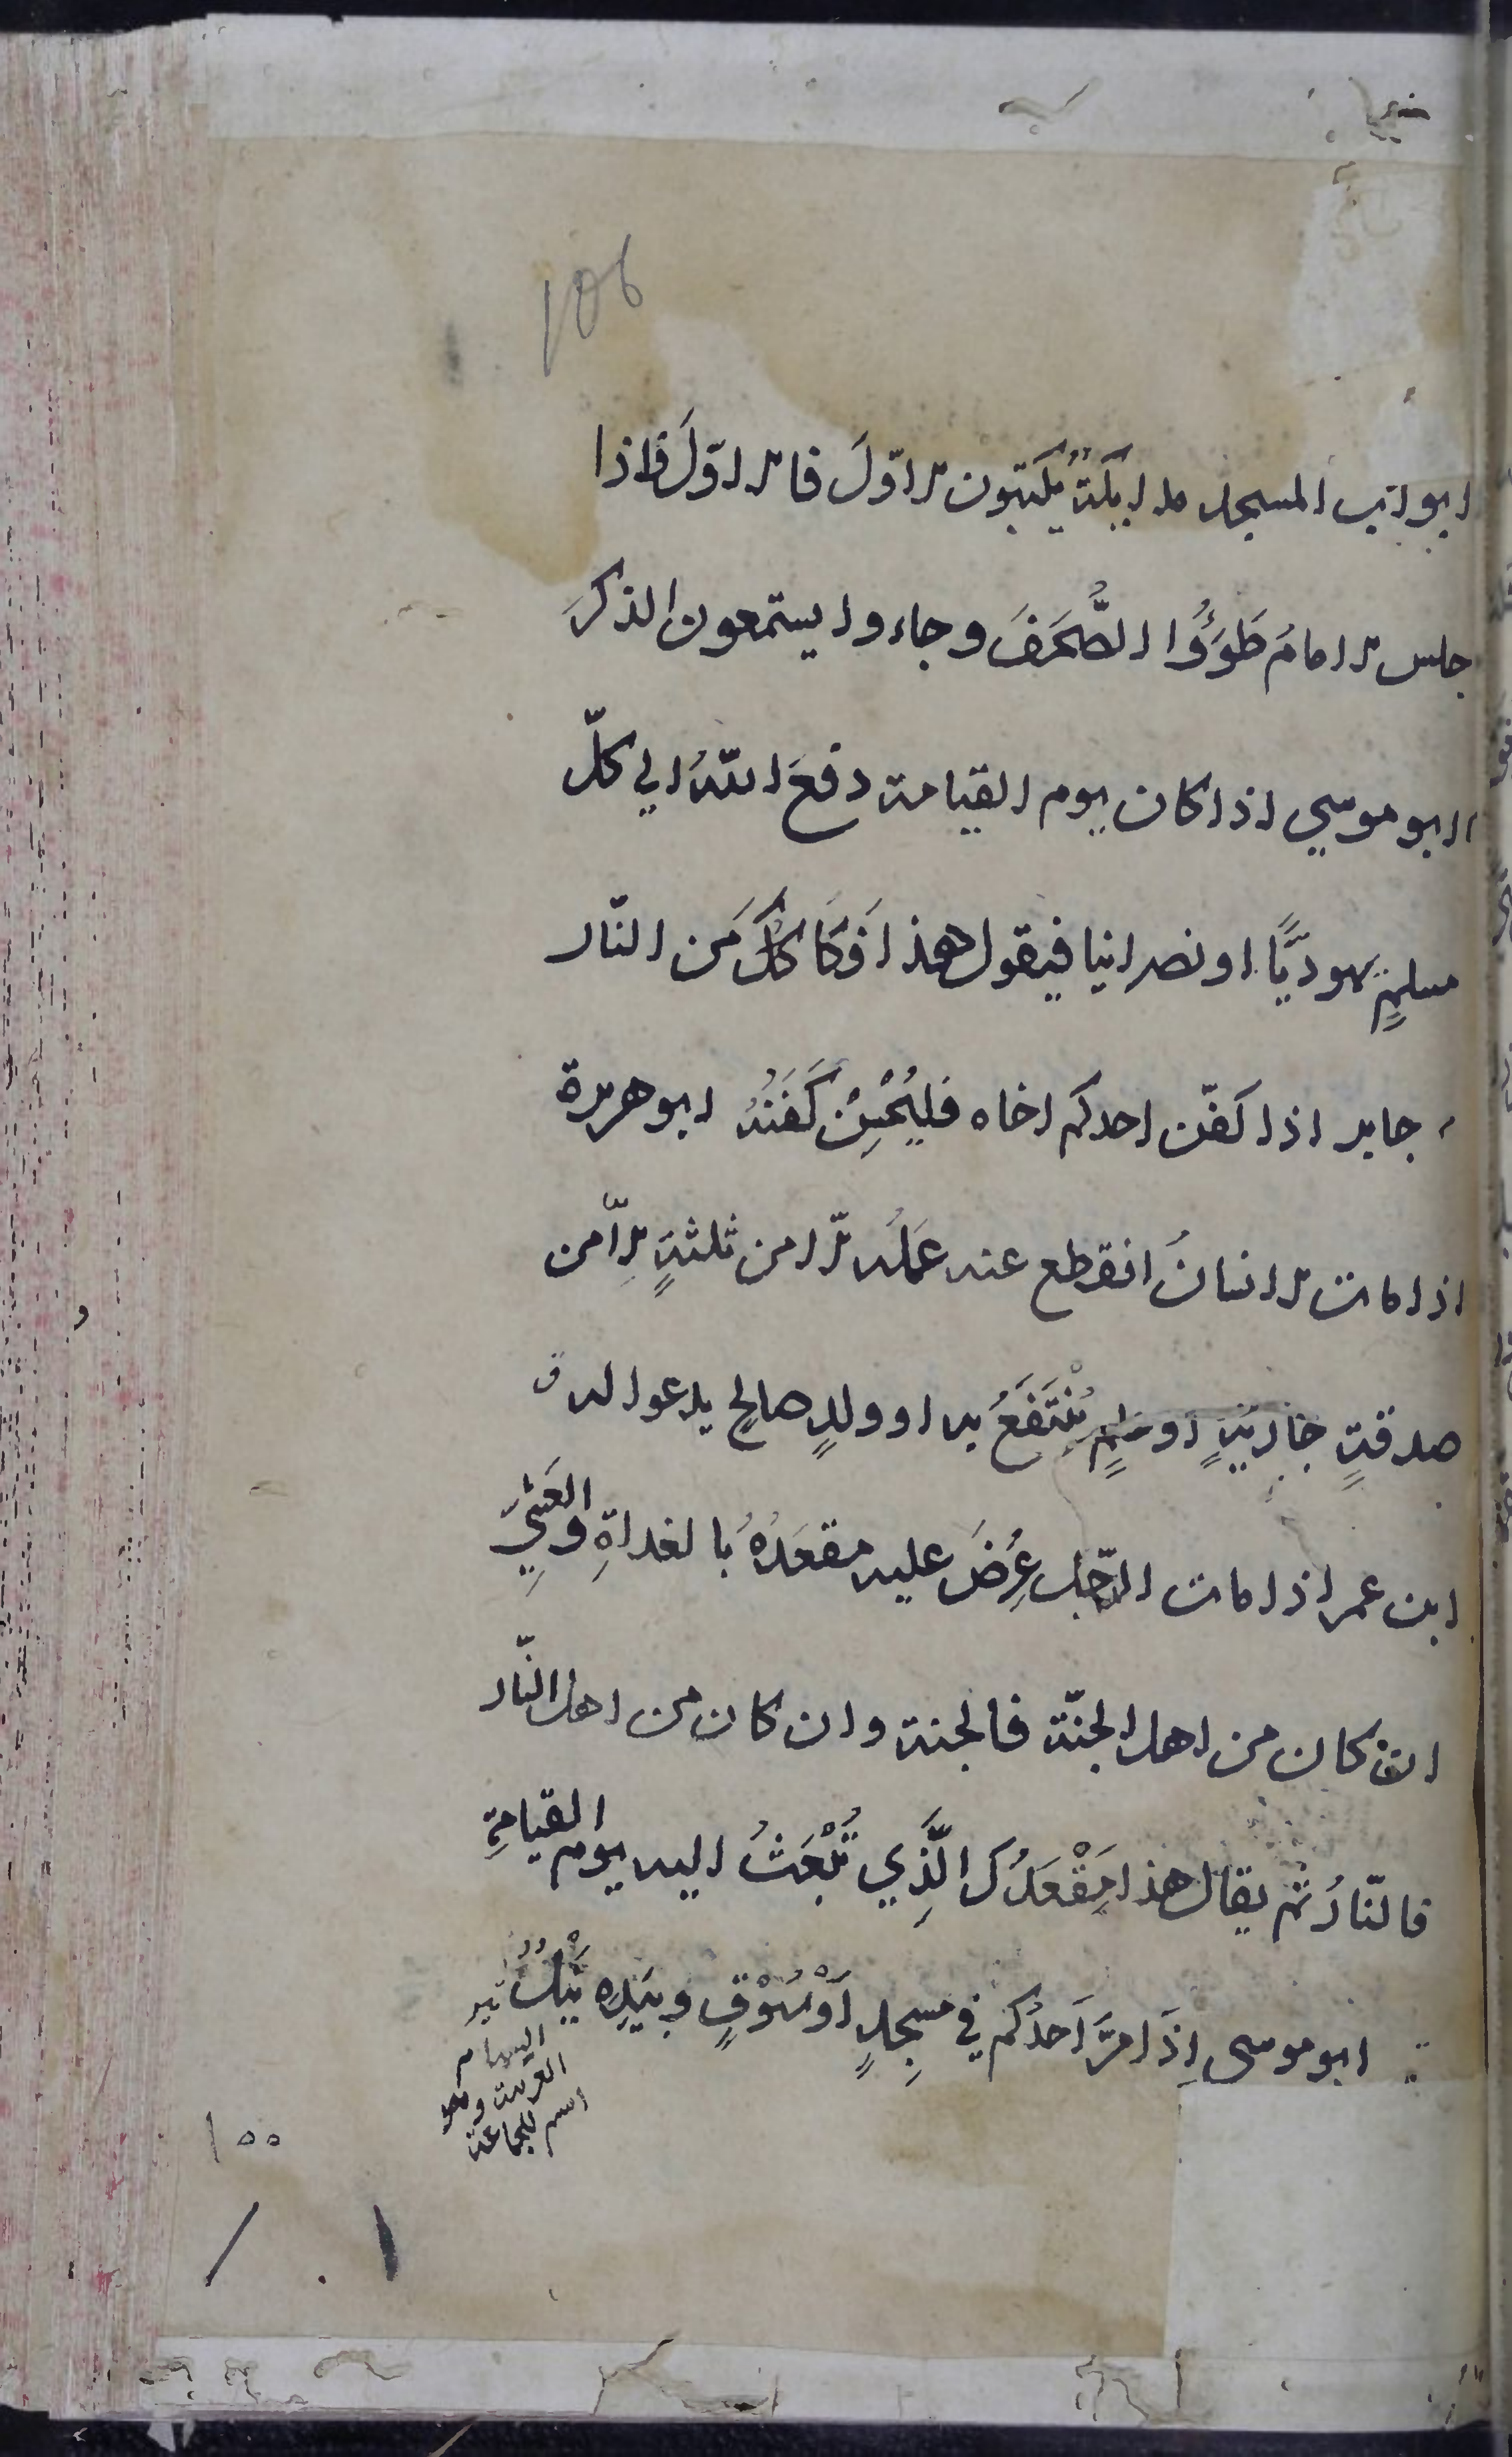 106
ابواب المسجد ملائكةٌ يكتبون الاوّلَ فالاوّلَ فاذا
جلس الامامُ طَوَوُا الصُّحُفَ وجاءوا يستمعون الذكرَ
ابو موسي اذا كان يوم القيامة دفعَ اللّهُ الي كلّ
مسلمٍ يهوديًّا او نصرانيا فيقول هذا فَكَاكُكَ من النّار
جابر اذا كفّن احدكم اخاه فليُحْسِنْ كَفَنَهُ ابو هريرة
اذا مات الانسانُ انقطع عنه عَمَلُه الّا من ثلثةٍ الّا من
صدقةٍ جاريةٍ او علمٍ يُنْتَفَعُ به او ولدٍ صالحٍ يدعوا له ق
ابن عمر اذا مات الرّجل عُرِضَ عليه مقعَدُهُ بالغداةِ والعَشِيِّ
ان كان من اهل الجنّة فالجنة وان كان من اهل النّار
فالنّارُ ثم يقال هذا مَقْعَدُكَ الَّذِي تُبْعَثُ اليه يوم القيامةِ
ابو موسى اِذَا مرَّ اَحدُكم في مسجِدٍ اَوْ سُوْقٍ وبيَدِه نَبْلٌ
السهام
العربية وهو
اسم للجماعة
١٥٥